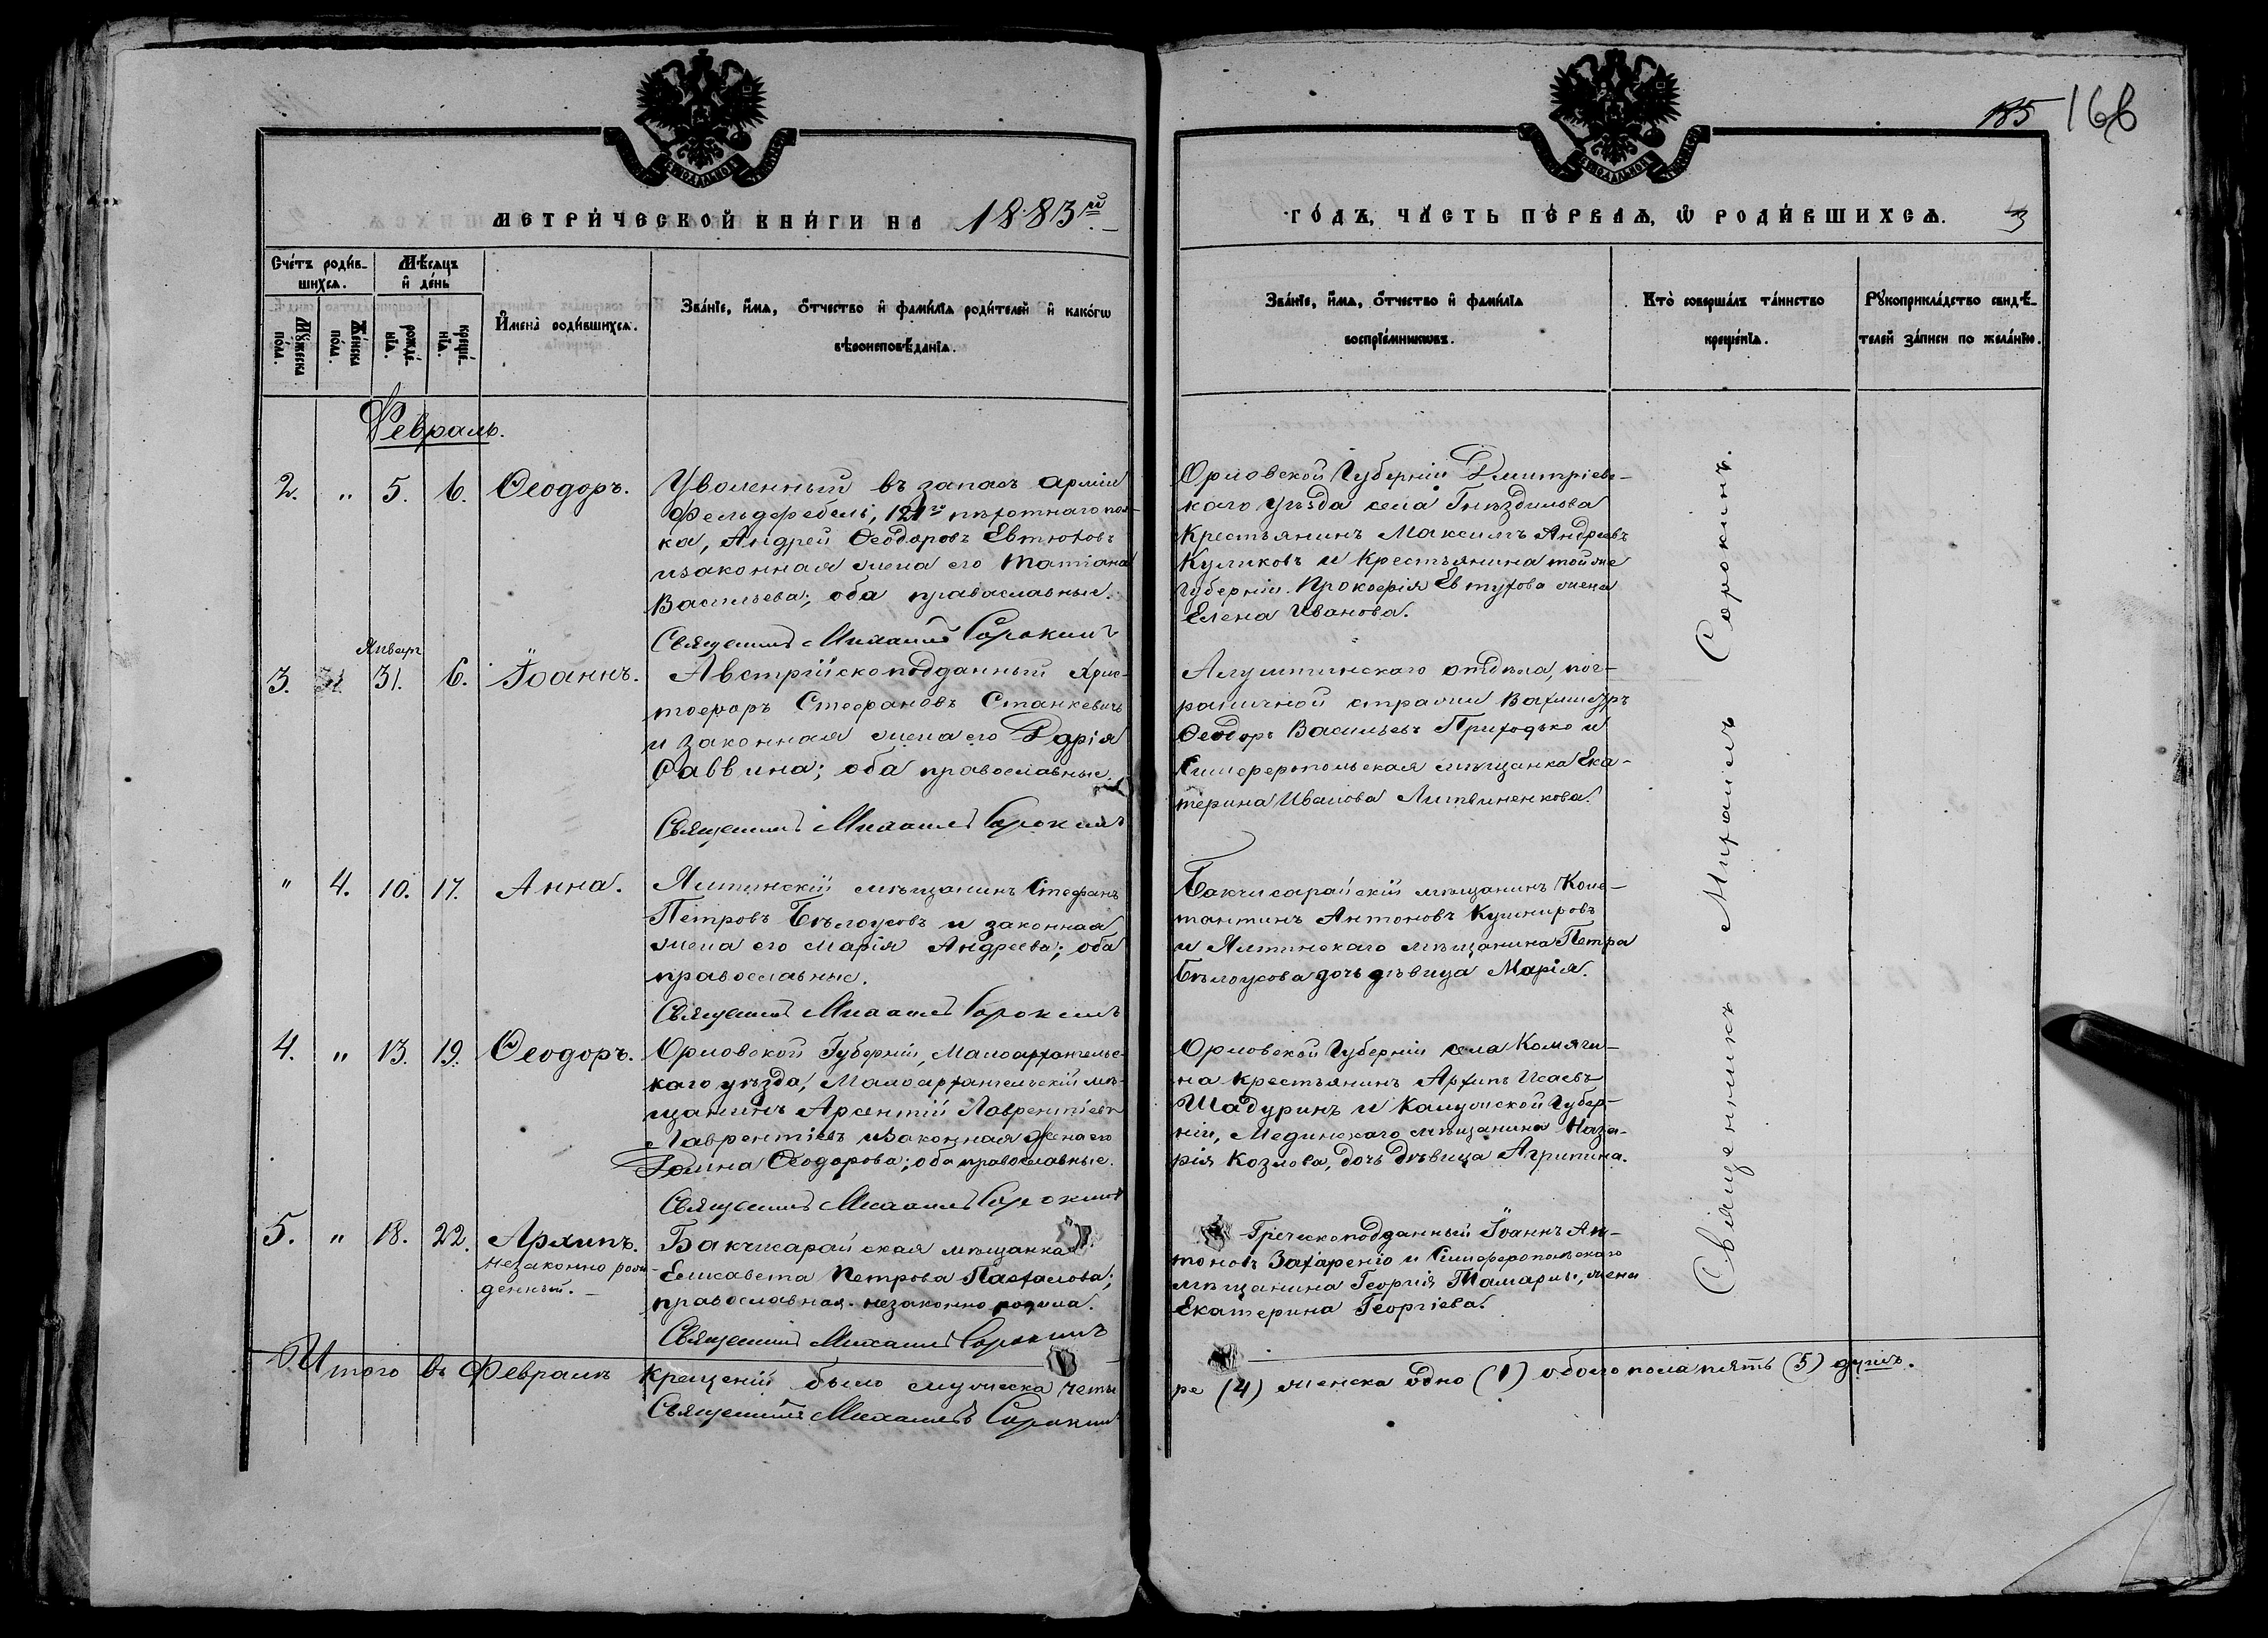 185 166
МЕТРИЧЕСКОЙ КНИГИ НА 1883й
ГОДЪ, ЧАСТЬ ПЕРВАЯ, Ѡ РОДИВШИХСЯ. 3
Счетъ родив-
шихся.
Мужеска пола.
Женска пола.
Мѣсяцъ
и день
рожде-
нія.
креще-
нія.
Имена родившихся.
Званіе, имя, отчество и фамилія родителей и какогѡ
вѣроисповѣданія.
Званіе, имя, отчество и фамилія
воспріемникѡвъ.
Кто совершалъ таинство
крещенія.
Рукоприкладство свидѣ-
телей записи по желанію.
Февраль.
2. " 5. 6. Ѳеодоръ.
Уволенный въ запасъ арміи
Фельдфебель, 121го пѣхотнаго пол-
ка, Андрей Ѳеодоровъ Евтюховъ
и законная жена его Татіана
Васильева; оба православные.
Священникъ Михаилъ Сорокинъ
Орловской Губерніи Дмитріевс-
каго уѣзда села Гнѣздилова
Крестьянинъ Максимъ Андреевъ
Куликовъ и Крестьянина той же
Губерніи Прокофія Евтухова жена
Елена Иванова.
Январ
3. 31. 6. Іоаннъ.
Австрійскоподданный Хрис-
тофоръ Стефановъ Станкевичъ
и законная жена его Дарія
Саввина; оба православные.
Священникъ Михаилъ Сорокинъ
Алуштинскаго отдѣла, пог-
раничной стражи Вахмистръ
Ѳеодоръ Васильевъ Приходько и
Симферопольская мѣщанка Ека-
терина Иванова Литвиненкова.
" 4. 10. 17. Анна.
Ялтинскій мѣщанинъ Стефанъ
Петровъ Бѣлоусовъ и законная
жена его Марія Андреева; оба
православные.
Священникъ Михаилъ Сорокинъ
Бакчисарайскій мѣщанинъ Конс-
тантинъ Антоновъ Кушнировъ
и Ялтинскаго мѣщанина Петра
Бѣлоусова дочь дѣвица Марія.
4. " 13. 19. Ѳеодоръ.
Орловской Губерніи, Малоархангельс-
каго уѣзда, Малоархангельскій мѣ-
щанинъ Арсентій Лаврентіевъ
Лаврентіевъ и законная жена его
Ѳеодорова; оба православные.
Священникъ Михаилъ Сорокинъ
Орловской Губерніи села Комяги-
на крестьянинъ Архипъ Исаевъ
Шадуринъ и Калужской Губер-
ніи, Мединскаго мѣщанина Наза-
рія Козлова, дочь дѣвица Агрипина.
5. " 18. 22. Архипъ.
незаконно рож-
денный.
Бакчисарайская мѣщанка
Елисавета Петрова Пасхалова;
православная. незаконно родила.
Священникъ Михаилъ Сорокинъ
Греческоподданный Іоаннъ Ан-
тоновъ Захаренго и Симферопольскаго
мѣщанина Георгія жена
Екатерина Георгіева.
Священникъ Михаилъ Сорокинъ.
Итого въ Февралѣ крещеній было мужеска четы
ре (4) женска одно (1) обоего пола пять (5) душъ.
Священникъ Михаилъ Сорокинъ